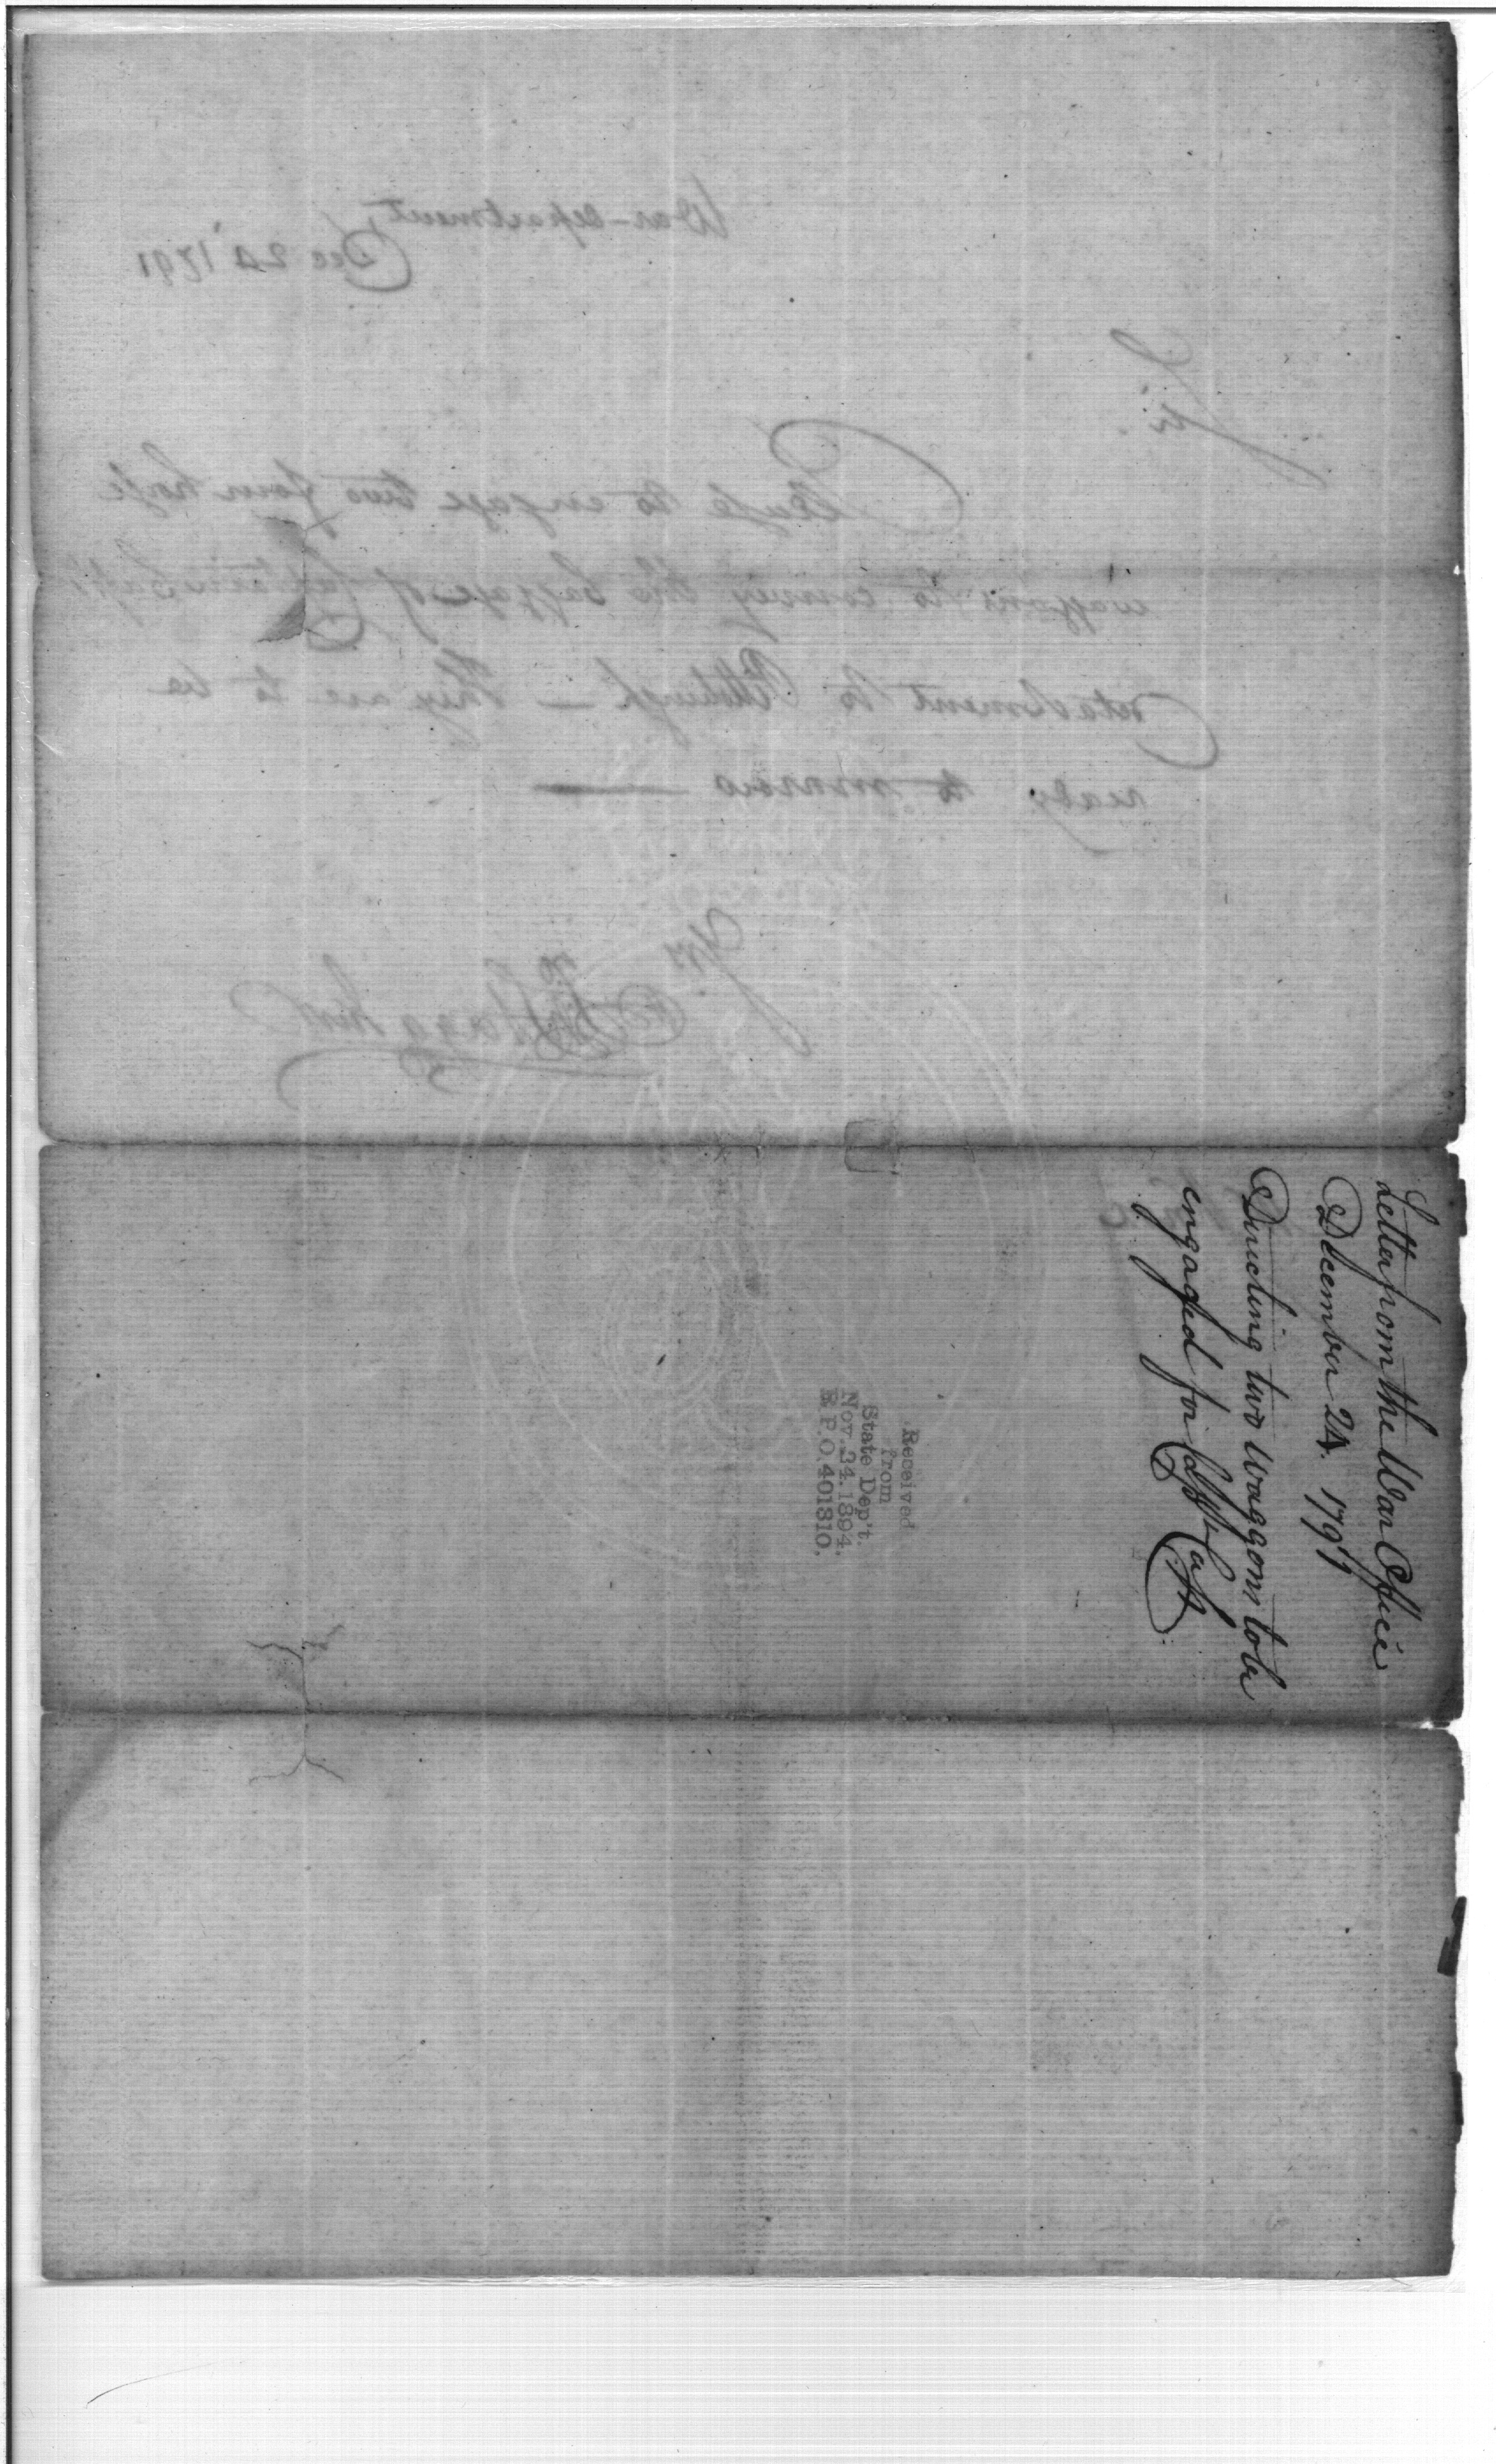 War-department,
Dec 24 1791
Sir.
Please to engage two four horse
waggons to convey the baggage of Captain
Detachment to Pittsburgh — They are to be
ready to morrow —
Yrs
Letter from the War Office
December 24. 1791
Directing two Waggons to be
engaged for Capt
Received
from
State Dep't.
Nov. 24. 1894.
R.P.O. 401810.